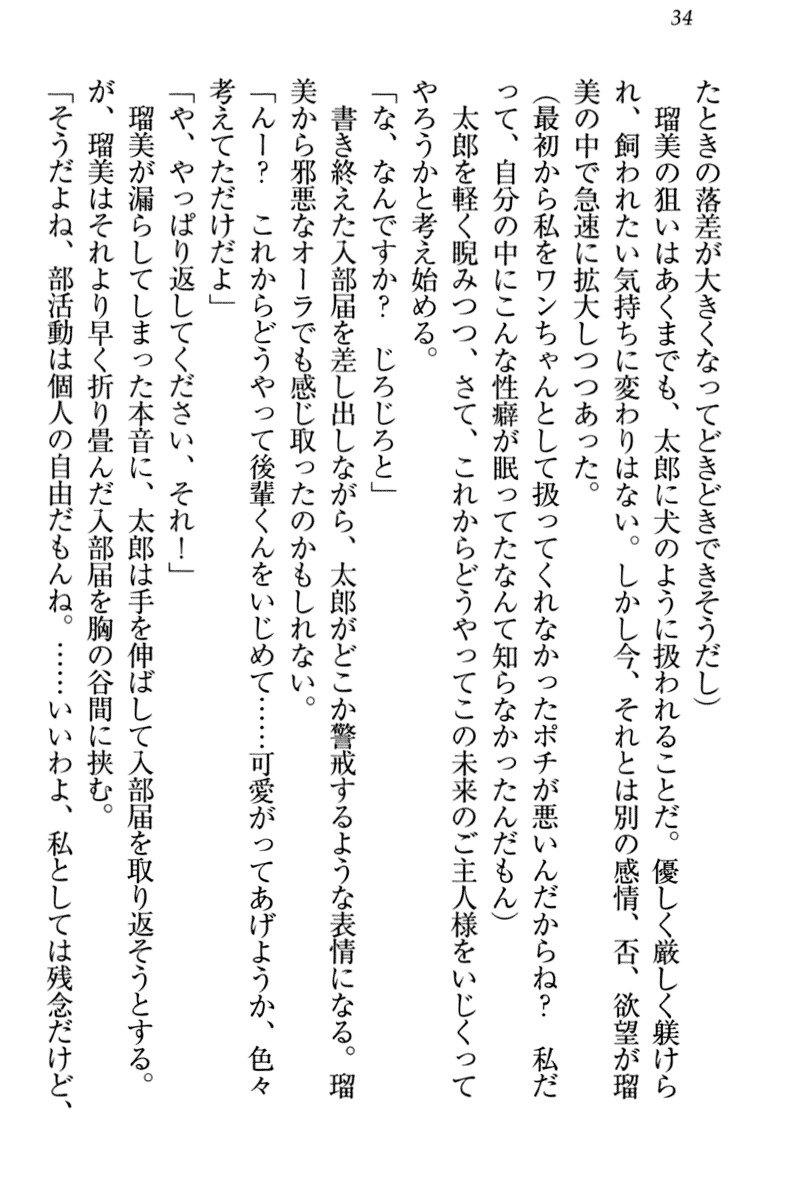 34
たときの落差が大きくなってどきどきできそうだし）
　瑠美の狙いはあくまでも、太郎に犬のように扱われることだ。優しく厳しく躾けら
れ、飼われたい気持ちに変わりはない。しかし今、それとは別の感情、否、欲望が瑠
美の中で急速に拡大しつつあった。
（最初から私をワンちゃんとして扱ってくれなかったポチが悪いんだからね？　私だ
って、自分の中にこんな性癖が眠ってたなんて知らなかったんだもん）
　太郎を軽く睨みつつ、さて、これからどうやってこの未来のご主人様をいじくって
やろうかと考え始める。
「な、なんですか？　じろじろと」
　書き終えた入部届を差し出しながら、太郎がどこか警戒するような表情になる。瑠
美から邪悪なオーラでも感じ取ったのかもしれない。
「んー？　これからどうやって後輩くんをいじめて……可愛がってあげようか、色々
考えてただけだよ」
「や、やっぱり返してください、それ！」
　瑠美が漏らしてしまった本音に、太郎は手を伸ばして入部届を取り返そうとする。
が、瑠美はそれより早く折り畳んだ入部届を胸の谷間に挟む。
「そうだよね、部活動は個人の自由だもんね。……いいわよ、私としては残念だけど、